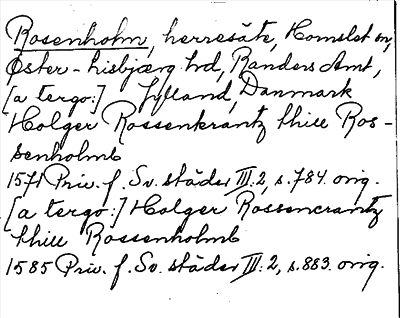 Rosenholm, herresäte, Homslet sn,
Öster-Lisbjærg hrd, Randers Amt,
[a tergo:] Jylland, Danmark
Holger Rossenkrantz thill Ros-
senholmb
1571 Priv. f. Sv. städer III:2, s. 784. orig.
[a tergo:] Holger Rossencrantz
thill Rossenholmb
1585 Priv. f. Sv. städer III:2, s. 883. orig.